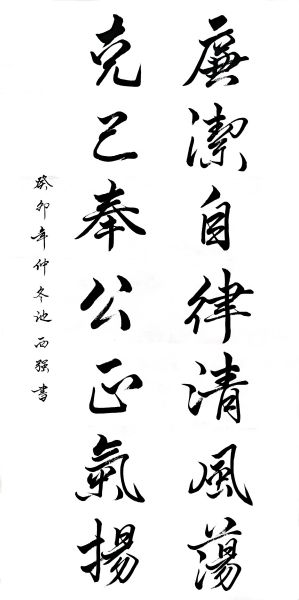 廉潔自律清風蕩
克己奉公正氣揚
癸卯年仲冬池西强書